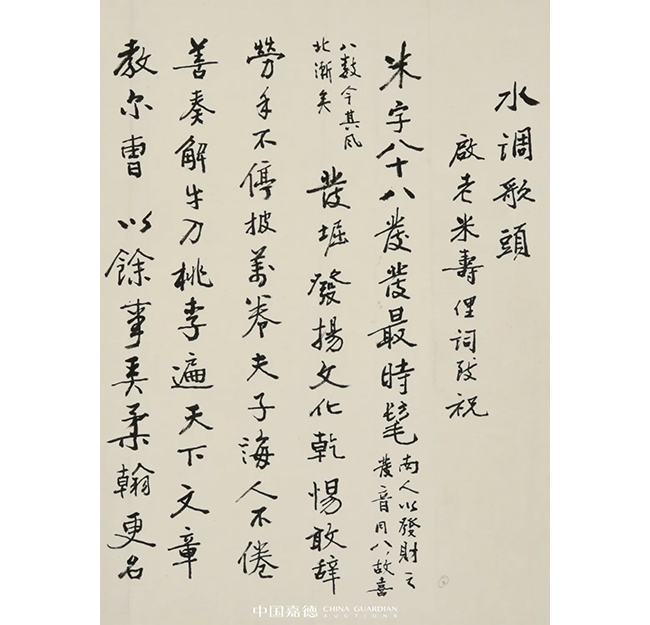 水调歌頭
啟老米壽俚詞致祝
米字八十八發發最時髦
南人以發財之
發音同八故喜
八数今其风
北渐矣
發堀發揚文化乾惕敢辞
勞手不停披萬卷夫子誨人不倦
善奏解牛刀桃李遍天下文章
教尔曹 以餘事柔翰更名
中国嘉德 CHINA GUARDIAN
AUCTIONS